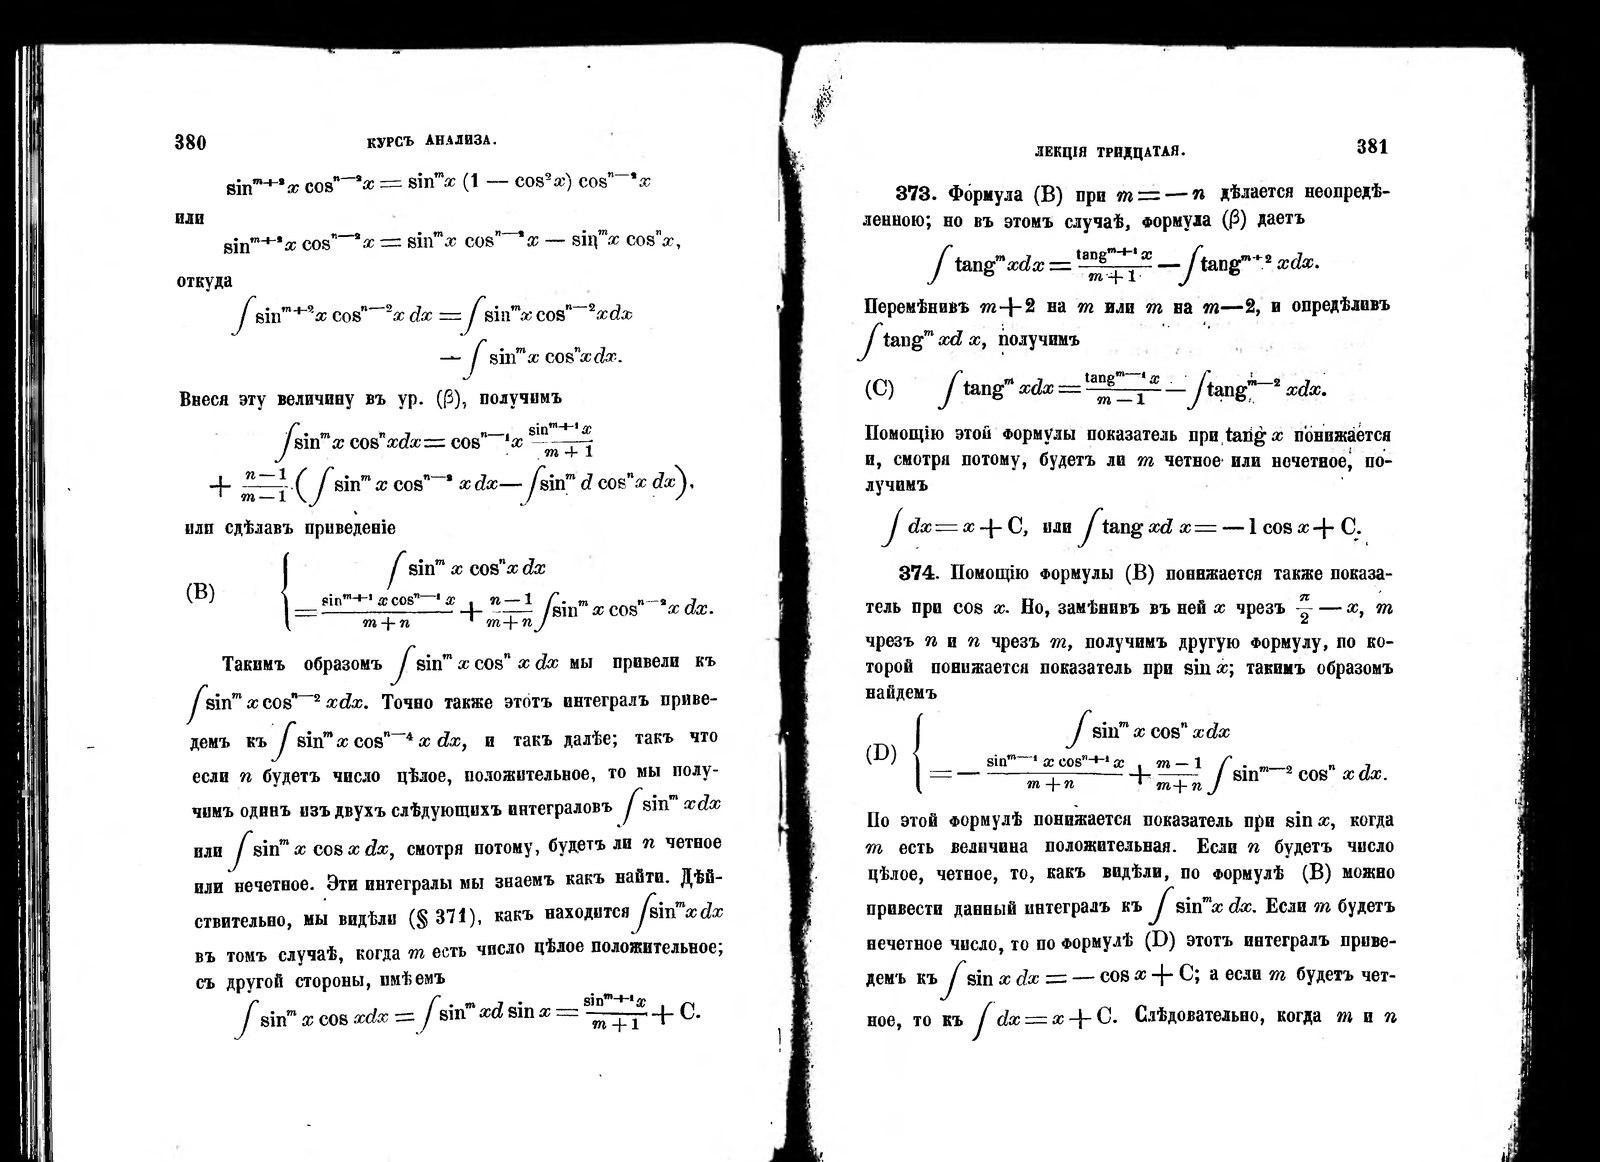 380
КУРСЪ АНАЛИЗА.
sin^{m+2}x cos^{n—2}x = sin^m x (1 — cos²x) cos^{n—2}x
или
sin^{m+2}x cos^{n—2}x = sin^m x cos^{n—2}x — sin^m x cos^n x,
откуда
∫ sin^{m+2}x cos^{n—2}x dx = ∫ sin^m x cos^{n—2}x dx
— ∫ sin^m x cos^n x dx.
Внеся эту величину въ ур. (β), получимъ
∫ sin^m x cos^n x dx = cos^{n—1}x \frac{sin^{m+1}x}{m+1}
+ \frac{n—1}{m—1} ( ∫ sin^m x cos^{n—2} x dx — ∫ sin^m d cos^n x dx ),
или сдѣлавъ приведеніе
(B) ∫ sin^m x cos^n x dx
= \frac{sin^{m+1} x cos^{n—1} x}{m+n} + \frac{n—1}{m+n} ∫ sin^m x cos^{n—2}x dx.
Такимъ образомъ ∫ sin^m x cos^n x dx мы привели къ
∫ sin^m x cos^{n—2} x dx. Точно также этотъ интегралъ приве-
демъ къ ∫ sin^m x cos^{n—4} x dx, и такъ далѣе; такъ что
если n будетъ число цѣлое, положительное, то мы полу-
чимъ одинъ изъ двухъ слѣдующихъ интеграловъ ∫ sin^m x dx
или ∫ sin^m x cos x dx, смотря потому, будетъ ли n четное
или нечетное. Эти интегралы мы знаемъ какъ найти. Дѣй-
ствительно, мы видѣли (§ 371), какъ находится ∫ sin^m x dx
въ томъ случаѣ, когда m есть число цѣлое положительное;
съ другой стороны, имѣемъ
∫ sin^m x cos x dx = ∫ sin^m x d sin x = \frac{sin^{m+1}x}{m+1} + C.
ЛЕКЦІЯ ТРИДЦАТАЯ.
381
373. Формула (B) при m = — n дѣлается неопредѣ-
ленною; но въ этомъ случаѣ, формула (β) даетъ
∫ tang^m x dx = \frac{tang^{m+1} x}{m+1} — ∫ tang^{m+2} x dx.
Перемѣнивъ m+2 на m или m на m—2, и опредѣливъ
∫ tang^m x d x, получимъ
(C) ∫ tang^m x dx = \frac{tang^{m—1} x}{m—1} — ∫ tang^{m—2} x dx.
Помощію этой формулы показатель при tang x понижается
и, смотря потому, будетъ ли m четное или нечетное, по-
лучимъ
∫ dx = x + C, или ∫ tang x d x = — l cos x + C.
374. Помощію формулы (B) понижается также показа-
тель при cos x. Но, замѣнивъ въ ней x чрезъ \frac{π}{2} — x, m
чрезъ n и n чрезъ m, получимъ другую формулу, по ко-
торой понижается показатель при sin x; такимъ образомъ
найдемъ
(D) ∫ sin^m x cos^n x dx
= — \frac{sin^{m—1} x cos^{n+1} x}{m+n} + \frac{m—1}{m+n} ∫ sin^{m—2} cos^n x dx.
По этой формулѣ понижается показатель при sin x, когда
m есть величина положительная. Если n будетъ число
цѣлое, четное, то, какъ видѣли, по формулѣ (B) можно
привести данный интегралъ къ ∫ sin^m x dx. Если m будетъ
нечетное число, то по формулѣ (D) этотъ интегралъ приве-
демъ къ ∫ sin x dx = — cos x + C; а если m будетъ чет-
ное, то къ ∫ dx = x + C. Слѣдовательно, когда m и n